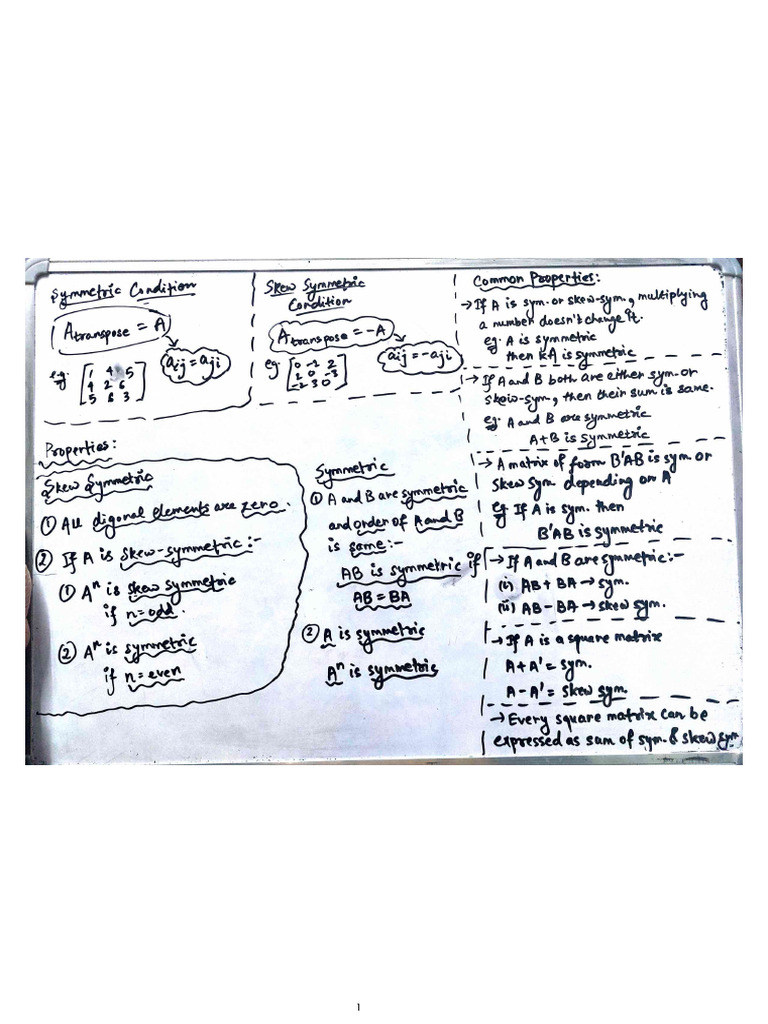 Symmetric Condition
A transpose = A
aij = aji
eg:
1 4 5
4 2 6
5 6 3
Skew Symmetric
Condition
A transpose = -A
aij = -aji
eg:
0 -2 2
2 0 -3
-2 3 0
Common Properties:
→ If A is sym. or skew-sym, multiplying
a number doesn't change it.
eg. A is symmetric
then kA is symmetric
→ If A and B both are either sym. or
skew-sym, then their sum is same.
eg. A and B are symmetric
A+B is symmetric
→ A matrix of form B'AB is sym or
skew sym depending on A
eg If A is sym. then
B'AB is symmetric
→ If A and B are symmetric:-
(i) AB + BA → sym.
(ii) AB - BA → skew sym.
→ If A is a square matrix
A + A' = sym.
A - A' = skew sym.
→ Every square matrix can be
expressed as sum of sym. & skew sym.
Properties:
Skew Symmetric
① All digonal elements are zero.
② If A is skew-symmetric:-
① Aⁿ is skew symmetric
if n=odd.
② Aⁿ is symmetric
if n=even
Symmetric
① A and B are symmetric
and order of A and B
is same:-
AB is symmetric if
AB = BA
② A is symmetric
Aⁿ is symmetric
1